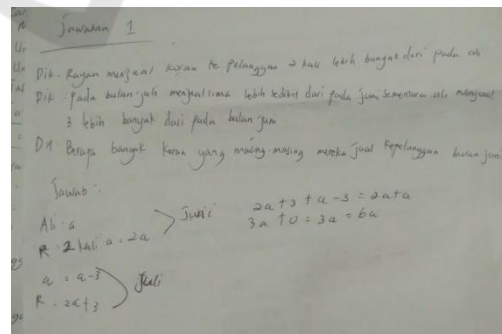 Jawaban 1
Dik. Rayan menjual koran ke pelanggan 2 kali lebih banyak dari pada ali
Dik. pada bulan juli menjual lima lebih sedikit dari pada juni sementara ali menjual
3 lebih banyak dari pada bulan juni
Dit Berapa banyak koran yang masing-masing mereka jual kepelanggan bulan juni
Jawab :
Ali = a
R = 2 kali a = 2a
Juni
2a + 3 + a - 3 = 2a + a
3a + 0 = 3a = 6a
a = a - 3
R = 2a + 3
Juli